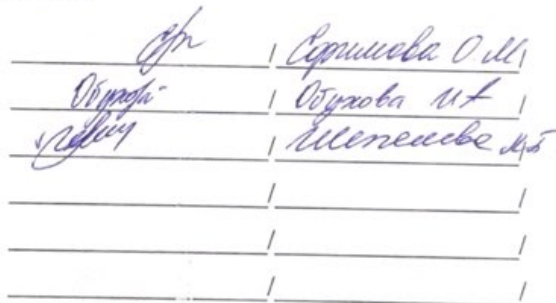 / Ефимова О.М/
Обухова И А
Шепелева М.Б